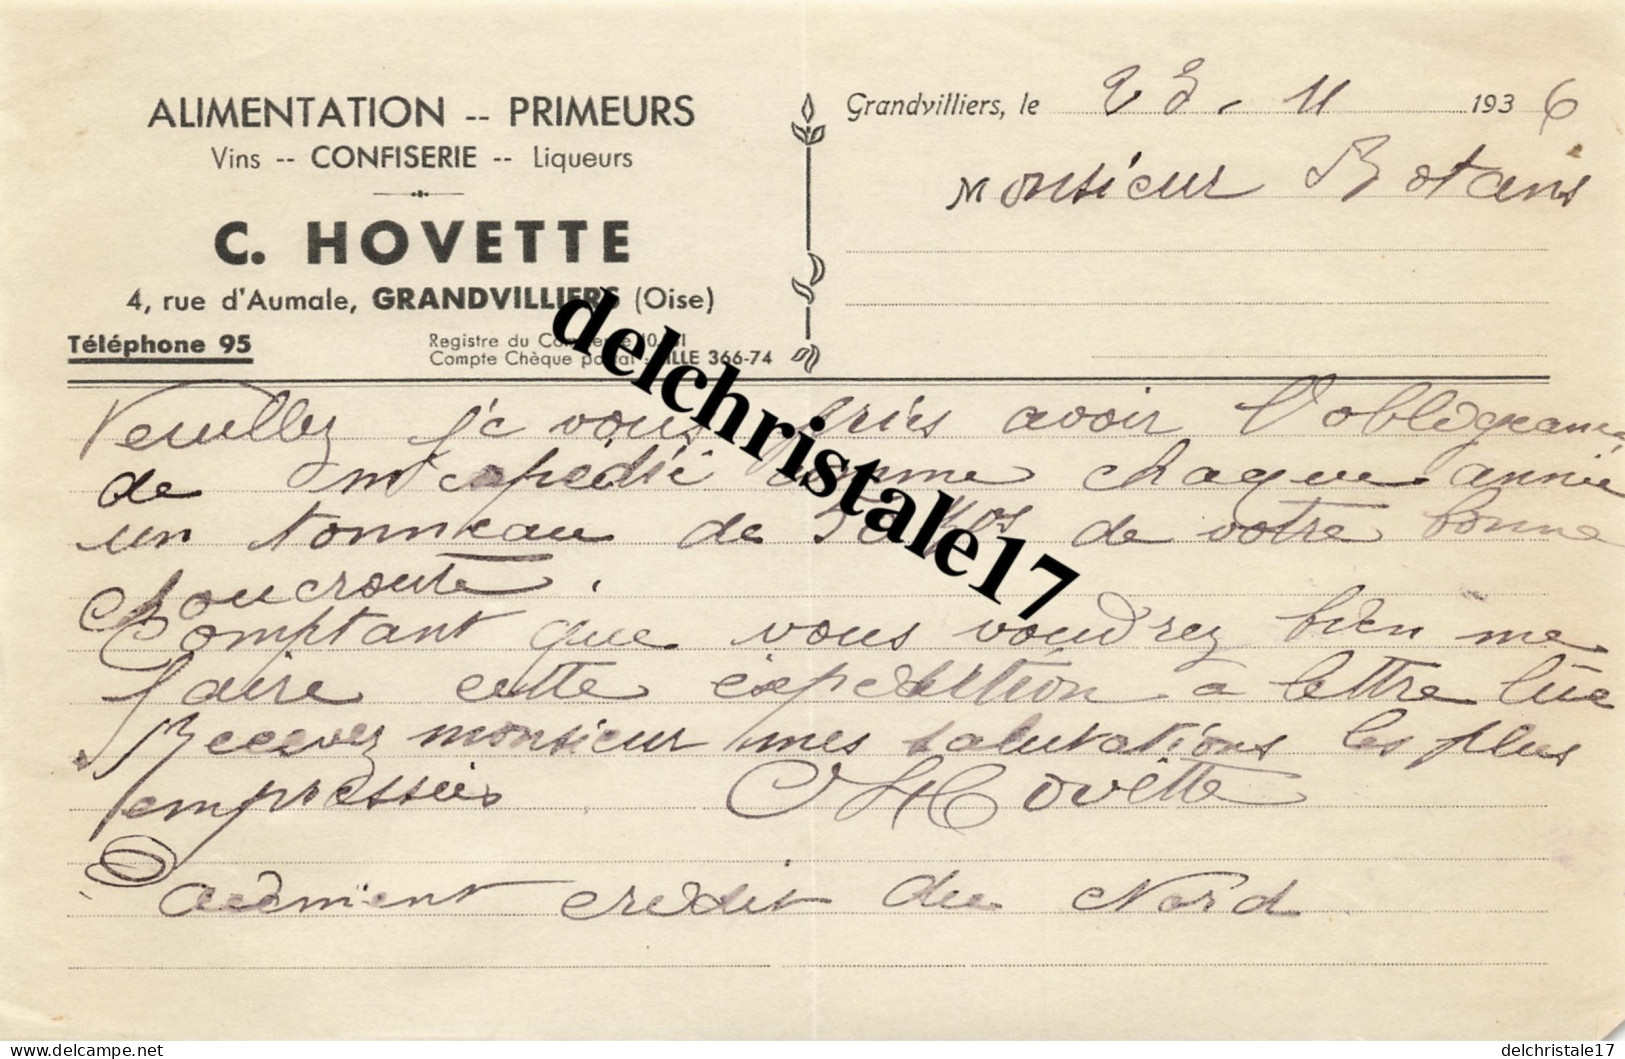 ALIMENTATION -- PRIMEURS
Vins -- CONFISERIE -- Liqueurs
C. HOVETTE
4, rue d'Aumale, GRANDVILLIERS (Oise)
Téléphone 95
Registre du Commerce
Compte Chèque postal - LILLE 366-74
Grandvilliers, le 23 - 11 1936
Monsieur
Veuillez je vous pries avoir l'obligeance
de m'expédié comme chaque année
un tonneau de 50 Kos de votre bonne
choucroute.
Comptant que vous voudrez bien me
faire cette expédition a lettre lue
Recevez monsieur mes salutations les plus
empressées C Hovette
Paiement credit du Nord
delchristale17
delcampe.net
delchristale17